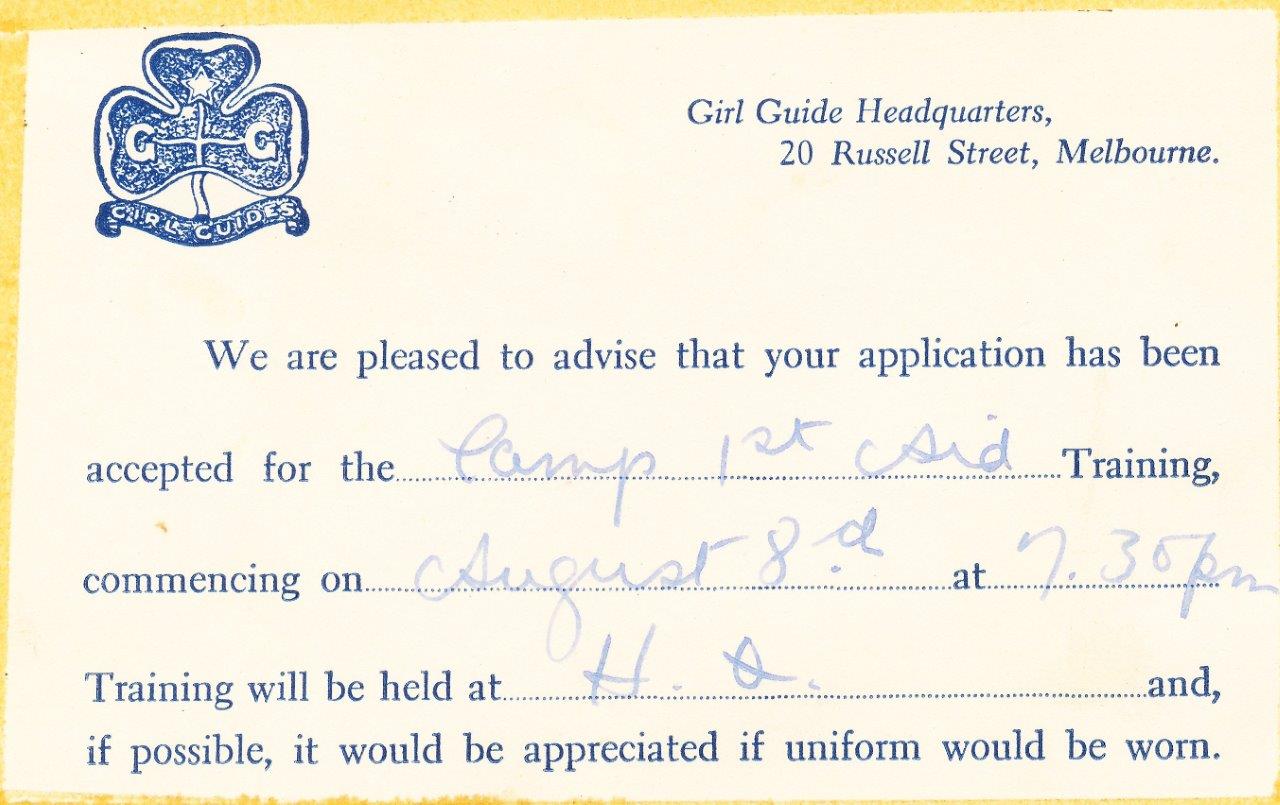 G G
GIRL GUIDES
Girl Guide Headquarters,
20 Russell Street, Melbourne.
We are pleased to advise that your application has been
accepted for the Camp 1st Aid Training,
commencing on August 8.d at 7.30pm
Training will be held at H. Q. and,
if possible, it would be appreciated if uniform would be worn.